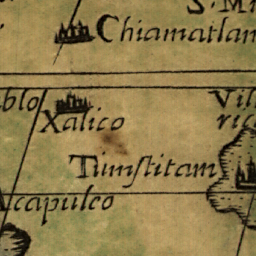 S. M
Chiamatlan
blo
Xalico
Vill
ric
Timſtitam
Acapulco